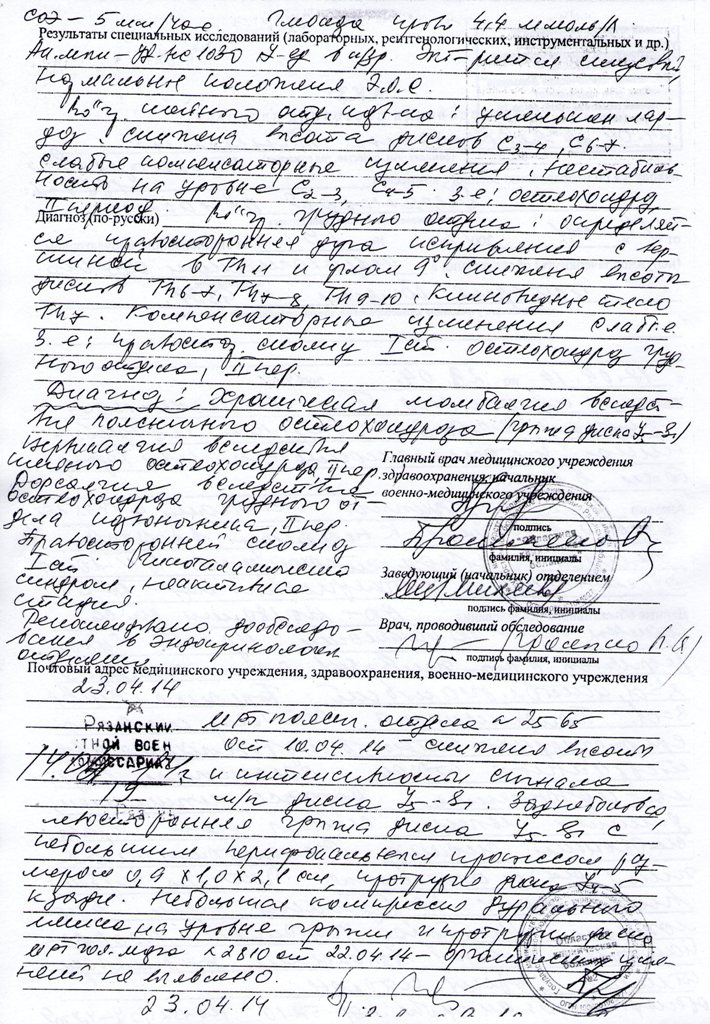 СОЭ - 5 мм/час. Глюкоза крови 4,4 ммоль/л
Результаты специальных исследований (лабораторных, рентгенологических, инструментальных и др.)
нормальное положение Э.О.С.
Ro"гр. шейного отдела: уменьшен лор-
доз, снижена высота дисков C3-4, C6-7.
слабые компенсаторные изменения. Нестабиль-
ность на уровне C2-3, C4-5. З-е: остеохондроз,
II период.
Диагноз (по-русски) Ro"гр. грудного отдела: определяет-
ся правосторонняя дуга искривления с вер-
шиной в Th11 и углом 9°. снижена высота
дисков Th6-7, Th7-8, Th9-10. Клиновидные тело
Th7. Компенсаторные изменения слабые.
З-е: правостор. сколиоз I ст. остеохондроз груд-
ного отдела, II пер.
Диагноз: Хроническая люмбалгия вследст-
вие поясничного остеохондроза (грыжа диска L5-S1)
Цервикалгия вследствие
шейного остеохондроза II пер.
Дорсалгия вследствие
остеохондроза грудного от-
дела позвоночника, II пер.
Правосторонний сколиоз
I ст. Гипоталамический
синдром, неактивная
стадия.
Рекомендовано дообследо-
вание в эндокринологич.
отделении
Главный врач медицинского учреждения
здравоохранения, начальник
военно-медицинского учреждения
подпись
фамилия, инициалы
Заведующий (начальник) отделением
подпись фамилия, инициалы
Врач, проводивший обследование
подпись фамилия, инициалы
Почтовый адрес медицинского учреждения, здравоохранения, военно-медицинского учреждения
23.04.14
РЯЗАНСКИЙ
ТНОЙ ВОЕН
КОМИССАРИАТ
МРТ поясн. отдела № 2565
от 10.04.14 - снижена высота
и интенсивность сигнала
м/п диска L5-S1. Заднебоковая
левосторонняя грыжа диска L5-S1 с
небольшим перифокальным процессом раз-
мером 0,9 x 1,0 x 2,1 см, протрузия диска L4-5
кзади. Небольшая компрессия дурального
мешка на уровне грыжи и протрузии диска
МРТ гол. мозга № 2810 от 22.04.14 - органических изме-
нений не выявлено.
23.04.14